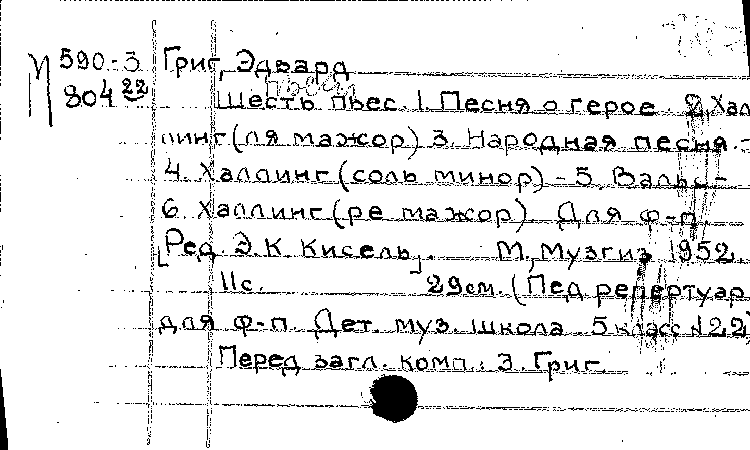 М 590-3 Григ, Эдвард
804 22 Шесть пьес. 1. Песня о герое. 2. Хал
линг (ля мажор) 3. Народная песня. -
4. Халлинг (соль минор) - 5. Вальс -
6. Халлинг (ре мажор). Для ф-п.
[Ред. Э. К. Кисель]. М., Музгиз 1952.
11 с. 29 см. (Пед репертуар
для ф-п. Дет. муз. школа 5 класс N 22)
Перед загл. комп.: Э. Григ.